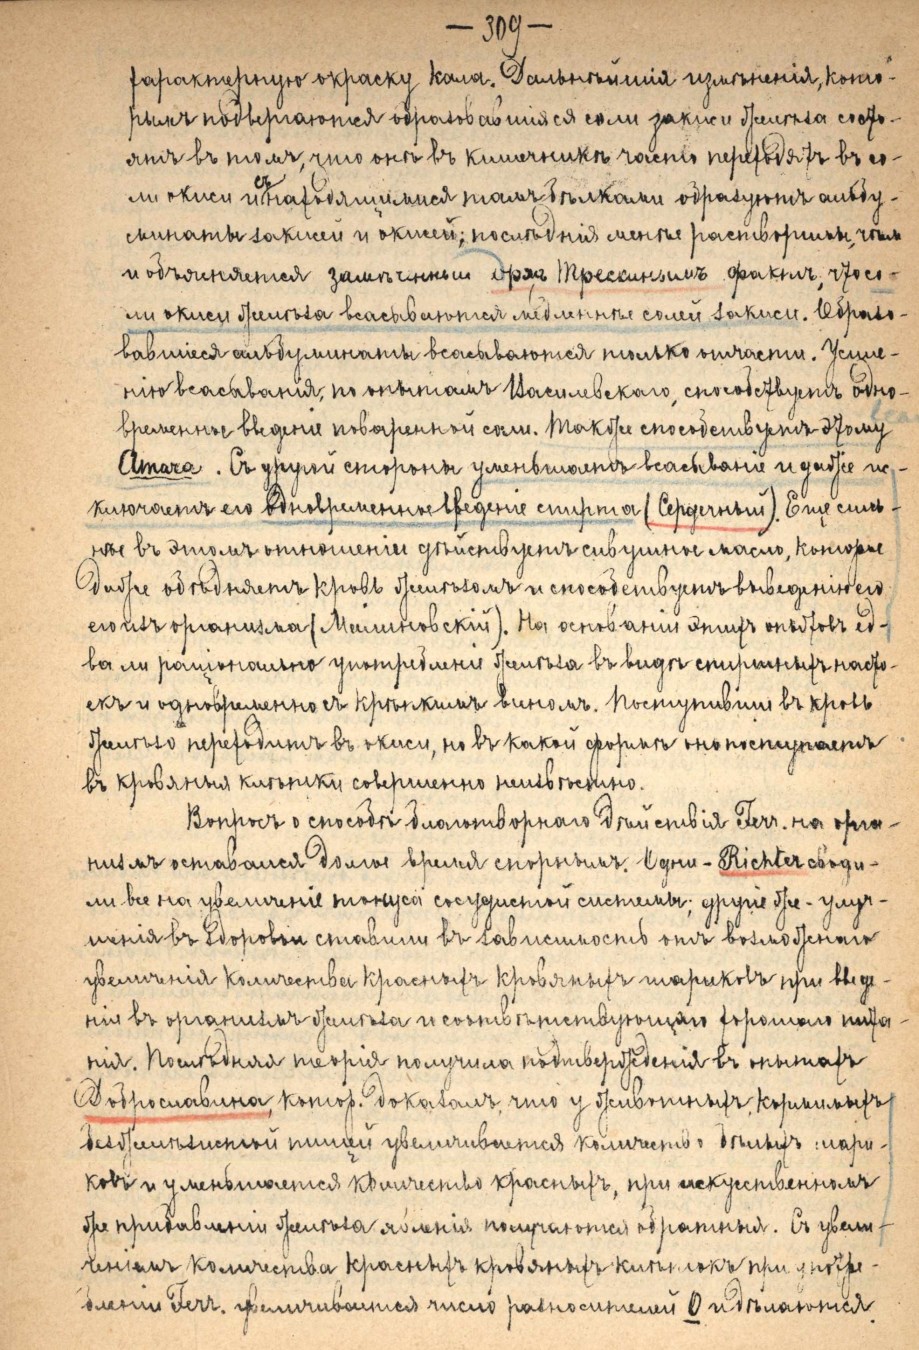 — 309 —
характерную окраску кала. Дальнѣйшія измѣненія, кото-
рымъ подвергаются образовавшіяся соли закиси желѣза состо-
ятъ въ томъ, что онѣ въ кишечникѣ часто переходятъ въ со-
ли окиси и съ находящимися тамъ бѣлками образуютъ альбу-
минаты закисей и окисей; послѣднія менѣе растворимы, чѣмъ
и объясняется замѣченный др. Трескинымъ фактъ, что со-
ли окиси желѣза всасываются медленнѣе солей закиси. Образо-
вавшіеся альбуминаты всасываются только отчасти. Усиле-
нію всасыванія, по опытамъ Василевскаго, способствуетъ одно-
временное введеніе поваренной соли. Также способствуетъ этому
Amara. Съ другой стороны уменьшаетъ всасываніе и даже ис-
ключаетъ его одновременное введеніе спирта (Сердечный). Еще силь-
нѣе въ этомъ отношеніи дѣйствуетъ сивушное масло, которое
даже объдняетъ кровь желѣзомъ и способствуетъ выведенію его
его изъ организма (Малиновскій). На основаніи этихъ опытовъ ед-
ва ли раціонально употребленіе желѣза въ видѣ спиртныхъ насто-
екъ и одновременно съ крѣпкимъ виномъ. Поступившее въ кровь
желѣзо переходитъ въ окиси, но въ какой формѣ оно поступаетъ
въ кровяныя клѣтки совершенно неизвѣстно.
Вопросъ о способѣ благотворнаго дѣйствія Ferr. на орга-
низмъ оставался долгое время спорнымъ. Одни - Richter своди-
ли все на увеличеніе тонуса сосудистой системы; другіе же - улуч-
шенія въ здоровьи ставили въ зависимость отъ возможнаго
увеличенія количества красныхъ кровяныхъ шариковъ при введе-
ніи въ организмъ желѣза и соотвѣтствующаго хорошаго пита-
нія. Послѣдняя теорія получила подтвержденія въ опытахъ
Доброславина, котор. доказалъ, что у животныхъ, кормимыхъ
безжелѣзистой пищей увеличивается количество бѣлыхъ шари-
ковъ и уменьшается количество красныхъ, при искусственномъ
же прибавленіи желѣза явленія получаются обратныя. Съ увели-
ченіемъ количества красныхъ кровяныхъ клѣтокъ при употре-
бленіи Ferr. увеличивается число разносителей O и дѣлаются